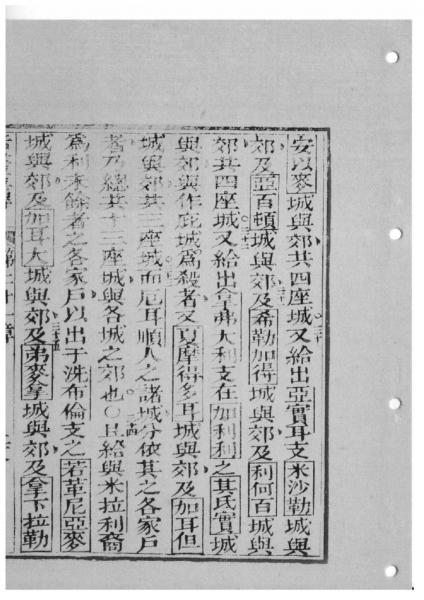 安以麥城與郊共四座城又給出亞實耳支米沙勒城與
郊及亞百頓城與郊及希勒加得城與郊及利何百城與
郊共四座城又給出拿弗大利支在加利利之其氐實城
與郊與作庇城爲殺者又夏摩得多耳城與郊及加耳但
城與郊共三座城而厄耳順人之諸城分依其之各家戶
者乃總共十三座城與各城之郊也〇且給與米拉利裔
爲利未餘者之各家戶以出于洗布倫支之若革尼亞麥
城與郊及加耳大城與郊及弟麥拿城與郊及拿下拉勒
第二十一章